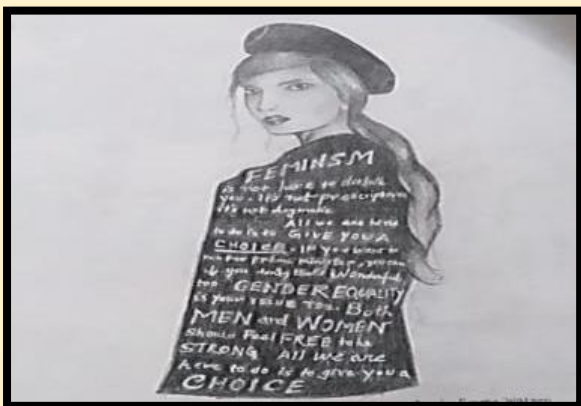 FEMINSM
is not here to dictate
you. It's not prescriptive
it's not dogmatic
All we are here
to do is to GIVE YOU A
CHOICE. IF you want to
run for prime minister, you can
if you don't that's Wonderful
too GENDER EQUALITY
is your issue too. Both
MEN and WOMEN
should Feel FREE to be
STRONG. All we are
here to do is to give you a
CHOICE